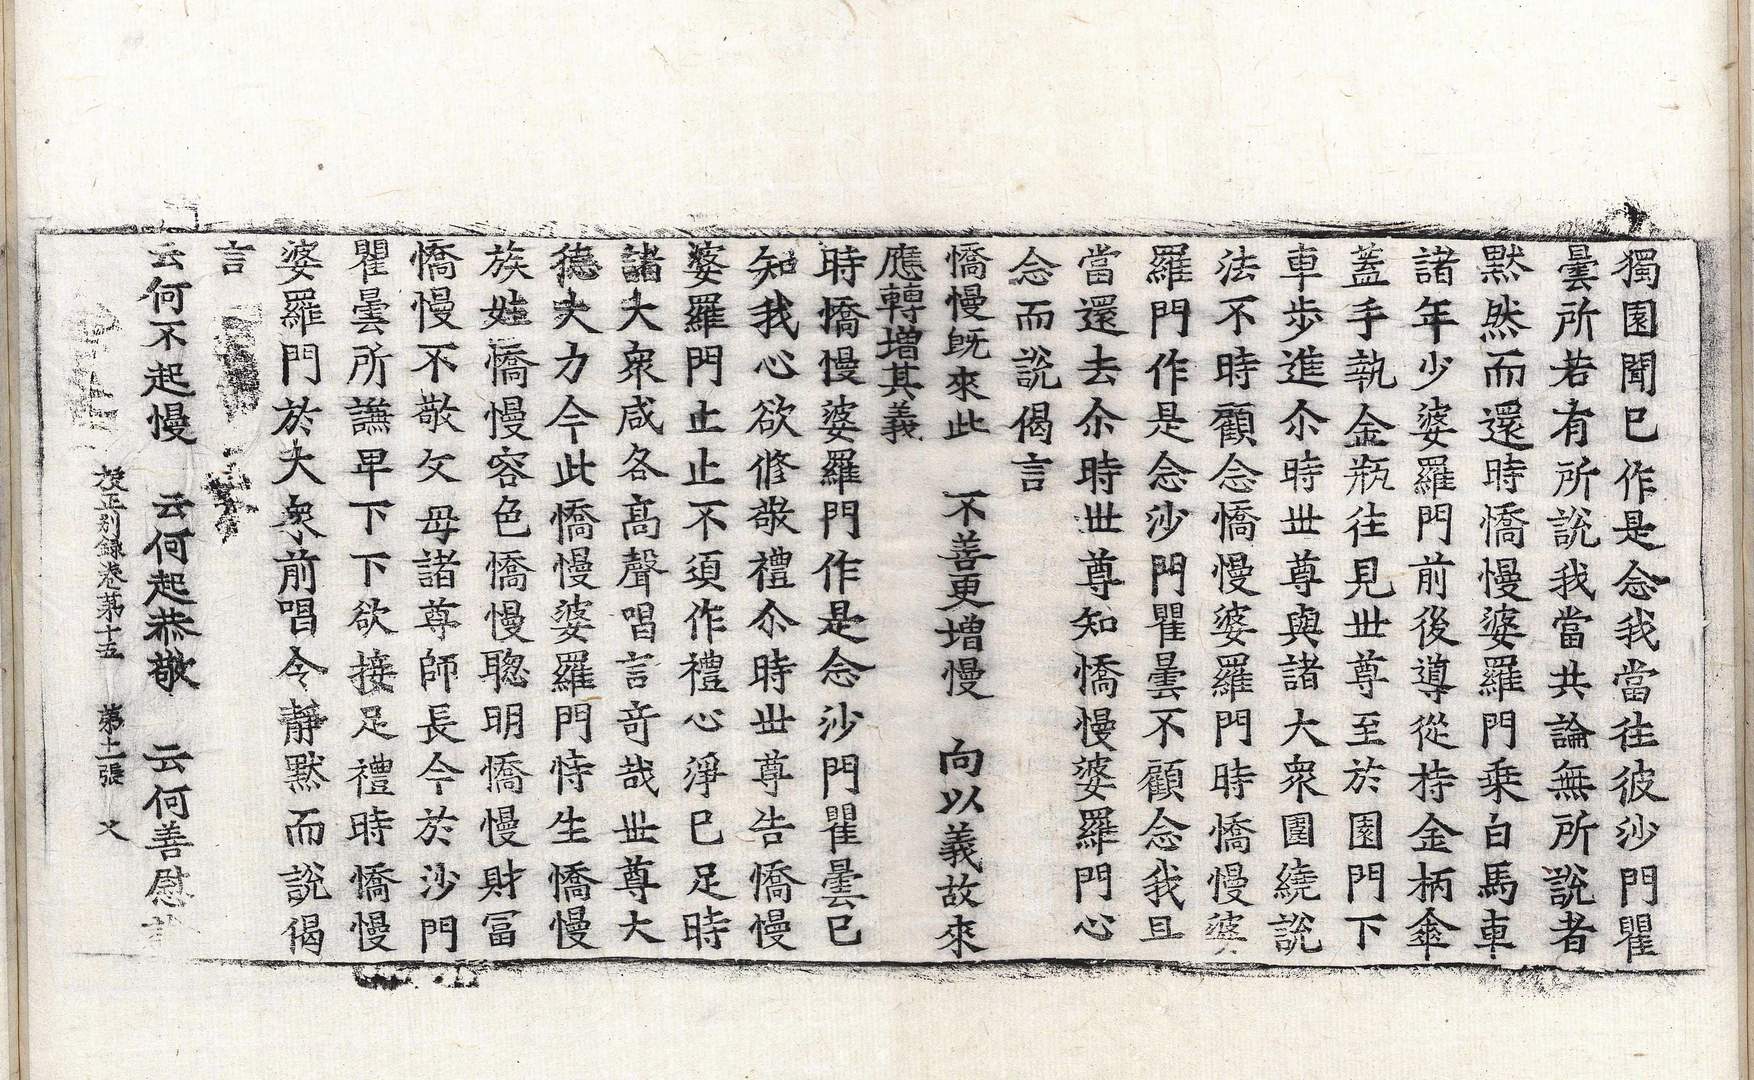 獨園聞已作是念我當往彼沙門瞿
曇所若有所說我當共論無所說者
默然而還時憍慢婆羅門乘白馬車
諸年少婆羅門前後導從持金柄傘
蓋手執金瓶往見世尊至於園門下
車步進尒時世尊與諸大衆圍繞說
法不時顧念憍慢婆羅門時憍慢婆
羅門作是念沙門瞿曇不顧念我且
當還去尒時世尊知憍慢婆羅門心
念而說偈言
憍慢旣來此　不善更增慢　向以義故來
應轉增其義
時憍慢婆羅門作是念沙門瞿曇已
知我心欲修敬禮尒時世尊告憍慢
婆羅門止止不須作禮心淨已足時
諸大衆咸各高聲唱言奇哉世尊大
德大力今此憍慢婆羅門恃生憍慢
族姓憍慢容色憍慢聰明憍慢財冨
憍慢不敬父母諸尊師長今於沙門
瞿曇所謙卑下下欲接足禮時憍慢
婆羅門於大衆前唱令靜默而說偈
言
云何不起慢　云何起恭敬　云何善慰
校正別録卷第十五　第十一張